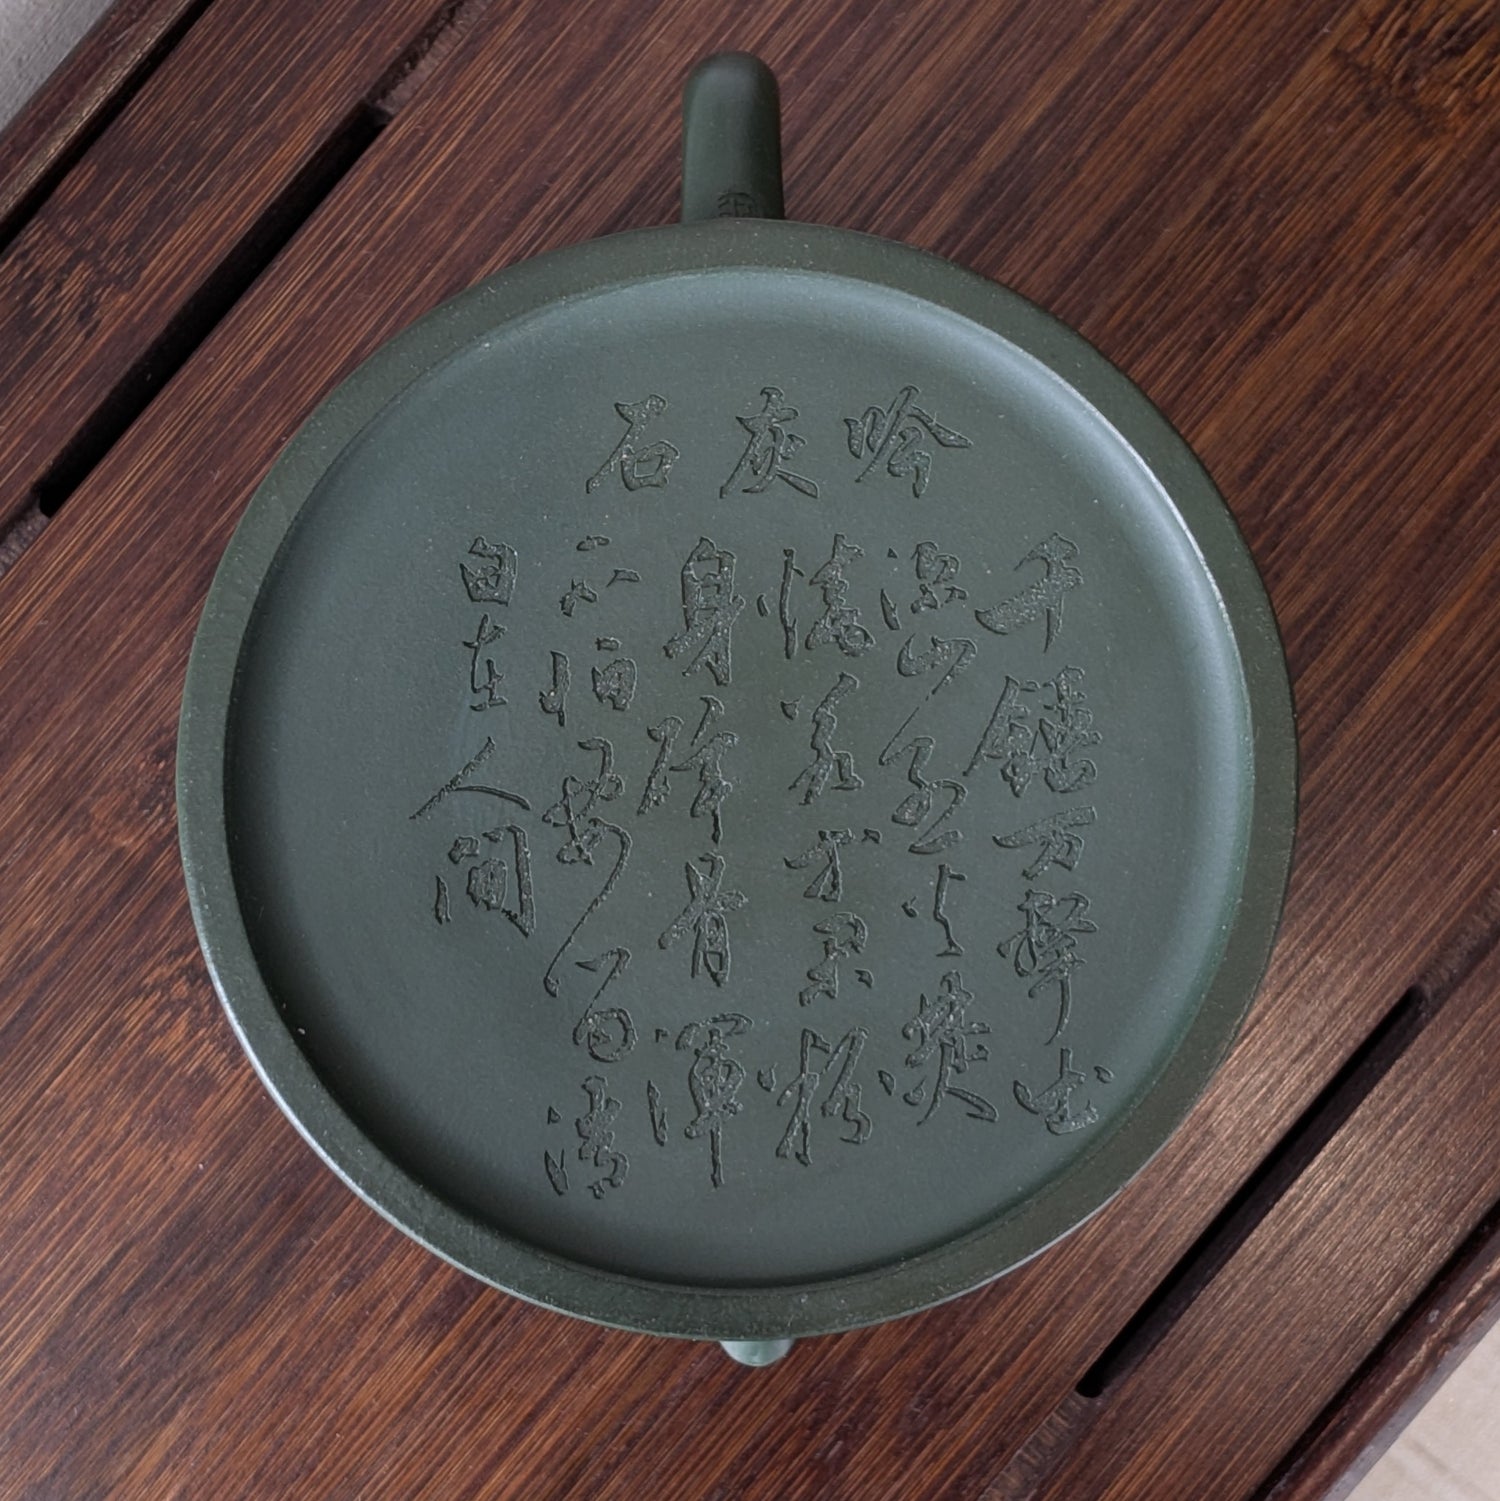 石灰吟
千錘万擊出
深山烈火焚
燒若等閒粉
身碎骨渾
不怕要留清
白在人間